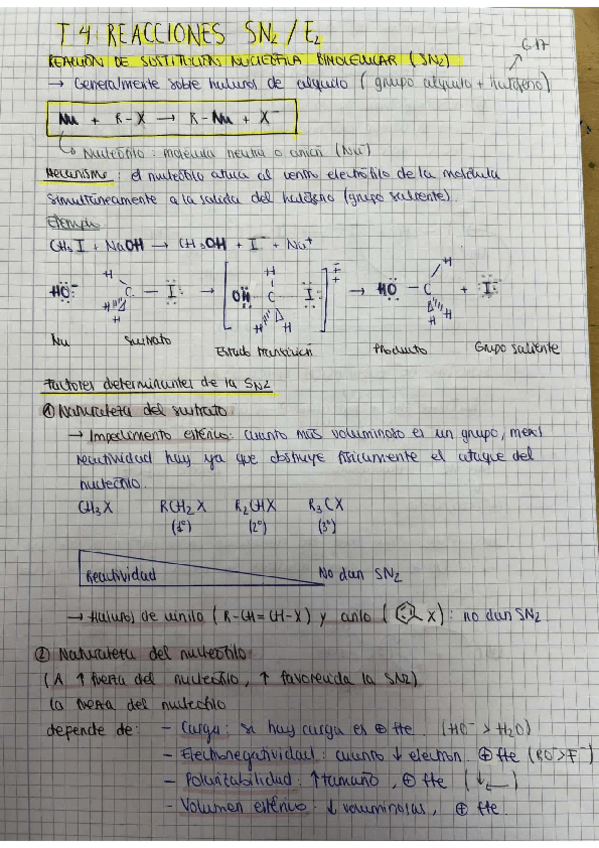 T.4 REACCIONES SN2 / E2
REACCIÓN DE SUSTITUCIÓN NUCLEÓFILA BIMOLECULAR (SN2)
G.17
→ Generalmente sobre haluros de alquilo (grupo alquilo + halógeno)
Nu + R-X → R-Nu + X⁻
↳ Nucleófilo: molécula neutra o anión (Nu⁻)
Mecanismo: el nucleófilo ataca al centro electrófilo de la molécula
simultáneamente a la salida del halógeno (grupo saliente).
Ejemplo
CH3I + NaOH → CH3OH + I⁻ + Na⁺
HO⁻ H C — I → [OH C I]‡ → HO — C + I⁻
H H H H H H H H
Nu Sustrato Estado transición Producto Grupo saliente
Factores determinantes de la SN2
① Naturaleza del sustrato
→ Impedimento estérico: cuanto más voluminoso es un grupo, menos
reactividad hay ya que obstruye físicamente el ataque del
nucleófilo.
CH3X RCH2X R2CHX R3CX
(1º) (2º) (3º)
Reactividad No dan SN2
→ Haluros de vinilo (R-CH=CH-X) y arilo ( X): no dan SN2
② Naturaleza del nucleófilo
(A ↑ fuerza del nucleófilo, ↑ favorecida la SN2)
La fuerza del nucleófilo
depende de: - Carga: si hay carga es ⊕ fte. (HO⁻ > H2O)
- Electronegatividad: cuanto ↓ electron. ⊕ fte (RO⁻>F⁻)
- Polarizabilidad: ↑ tamaño, ⊕ fte (↓←)
- Volumen estérico: ↓ voluminosas, ⊕ fte.